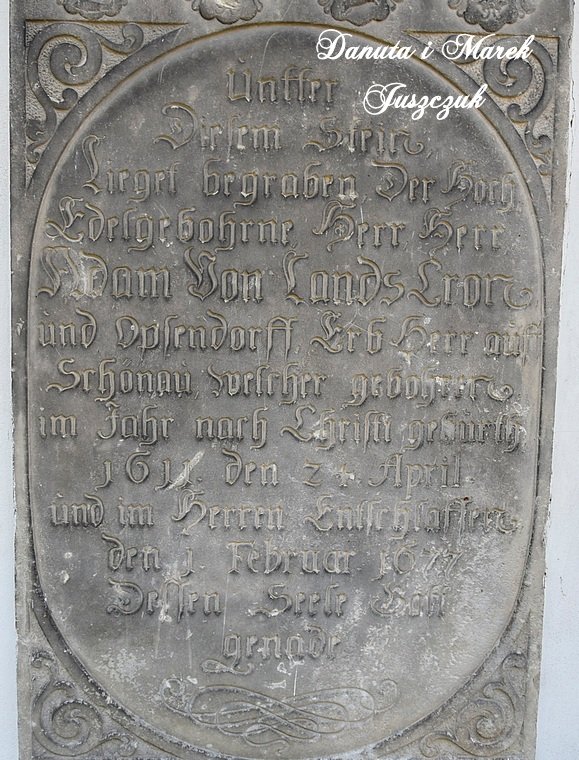 Danuta i Marek
Juszczuk
Untter
Diesem Stein,
Lieget begraben, Der Hoch
Edelgebohrne, Herr, Herr,
Adam Von Lands Cron
und opsendorff, Erb Herr auff
Schönau, welcher gebohren
im Jahr nach Christi gebürth
1611. den 24. April.
und im Herren Entschlaffen
den 1. Februar 1677
Dessen Seele Gott
genade